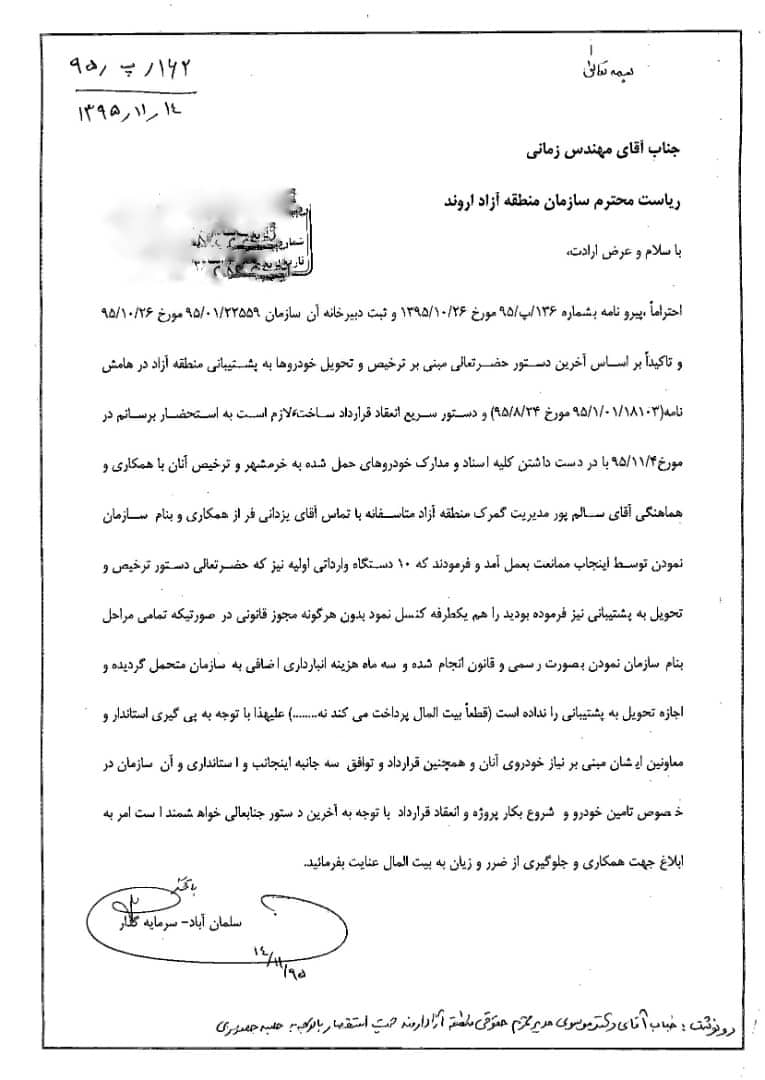 بسمه تعالی
۹۵/پ/۱۶۲
۱۳۹۵/۱۱/۱٤
جناب آقای مهندس زمانی
ریاست محترم سازمان منطقه آزاد اروند
با سلام و عرض ارادت،
احتراماً ،پیرو نامه بشماره ۱۳۶/پ/۹۵ مورخ ۱۳۹۵/۱۰/۲۶ و ثبت دبیرخانه آن سازمان ۹۵/۰۱/۲۲۵۵۹ مورخ ۹۵/۱۰/۲۶
و تاکیداً بر اساس آخرین دستور حضرتعالی مبنی بر ترخیص و تحویل خودروها به پشتیبانی منطقه آزاد در هامش
نامه(۹۵/۱/۰۱/۱۸۱۰۳ مورخ ۹۵/۸/۲۴) و دستور سریع انعقاد قرارداد ساخت،لازم است به استحضار برسانم در
مورخ۹۵/۱۱/۴ با در دست داشتن کلیه اسناد و مدارک خودروهای حمل شده به خرمشهر و ترخیص آنان با همکاری و
هماهنگی آقای سالم پور مدیریت گمرک منطقه آزاد متاسفانه با تماس آقای یزدانی فر از همکاری و بنام سازمان
نمودن توسط اینجاب ممانعت بعمل آمد و فرمودند که ۱۰ دستگاه وارداتی اولیه نیز که حضرتعالی دستور ترخیص و
تحویل به پشتیبانی نیز فرموده بودید را هم یکطرفه کنسل نمود بدون هرگونه مجوز قانونی در صورتیکه تمامی مراحل
بنام سازمان نمودن بصورت رسمی و قانون انجام شده و سه ماه هزینه انبارداری اضافی به سازمان متحمل گردیده و
اجازه تحویل به پشتیبانی را نداده است (قطعاً بیت المال پرداخت می کند نه........) علیهذا با توجه به پی گیری استاندار و
معاونین ایشان مبنی بر نیاز خودروی آنان و همچنین قرارداد و توافق سه جانبه اینجانب و استانداری و آن سازمان در
خصوص تامین خودرو و شروع بکار پروژه و انعقاد قرارداد با توجه به آخرین دستور جنابعالی خواهشمند است امر به
ابلاغ جهت همکاری و جلوگیری از ضرر و زیان به بیت المال عنایت بفرمائید.
با تشکر
سلمان آباد- سرمایه گذار
۹۵/۱۱/۱٤
رونوشت: جناب آقای دکتر موسوی مدیر محترم حقوقی منطقه آزاد اروند جهت استحضار با توجه به جلسه حضوری